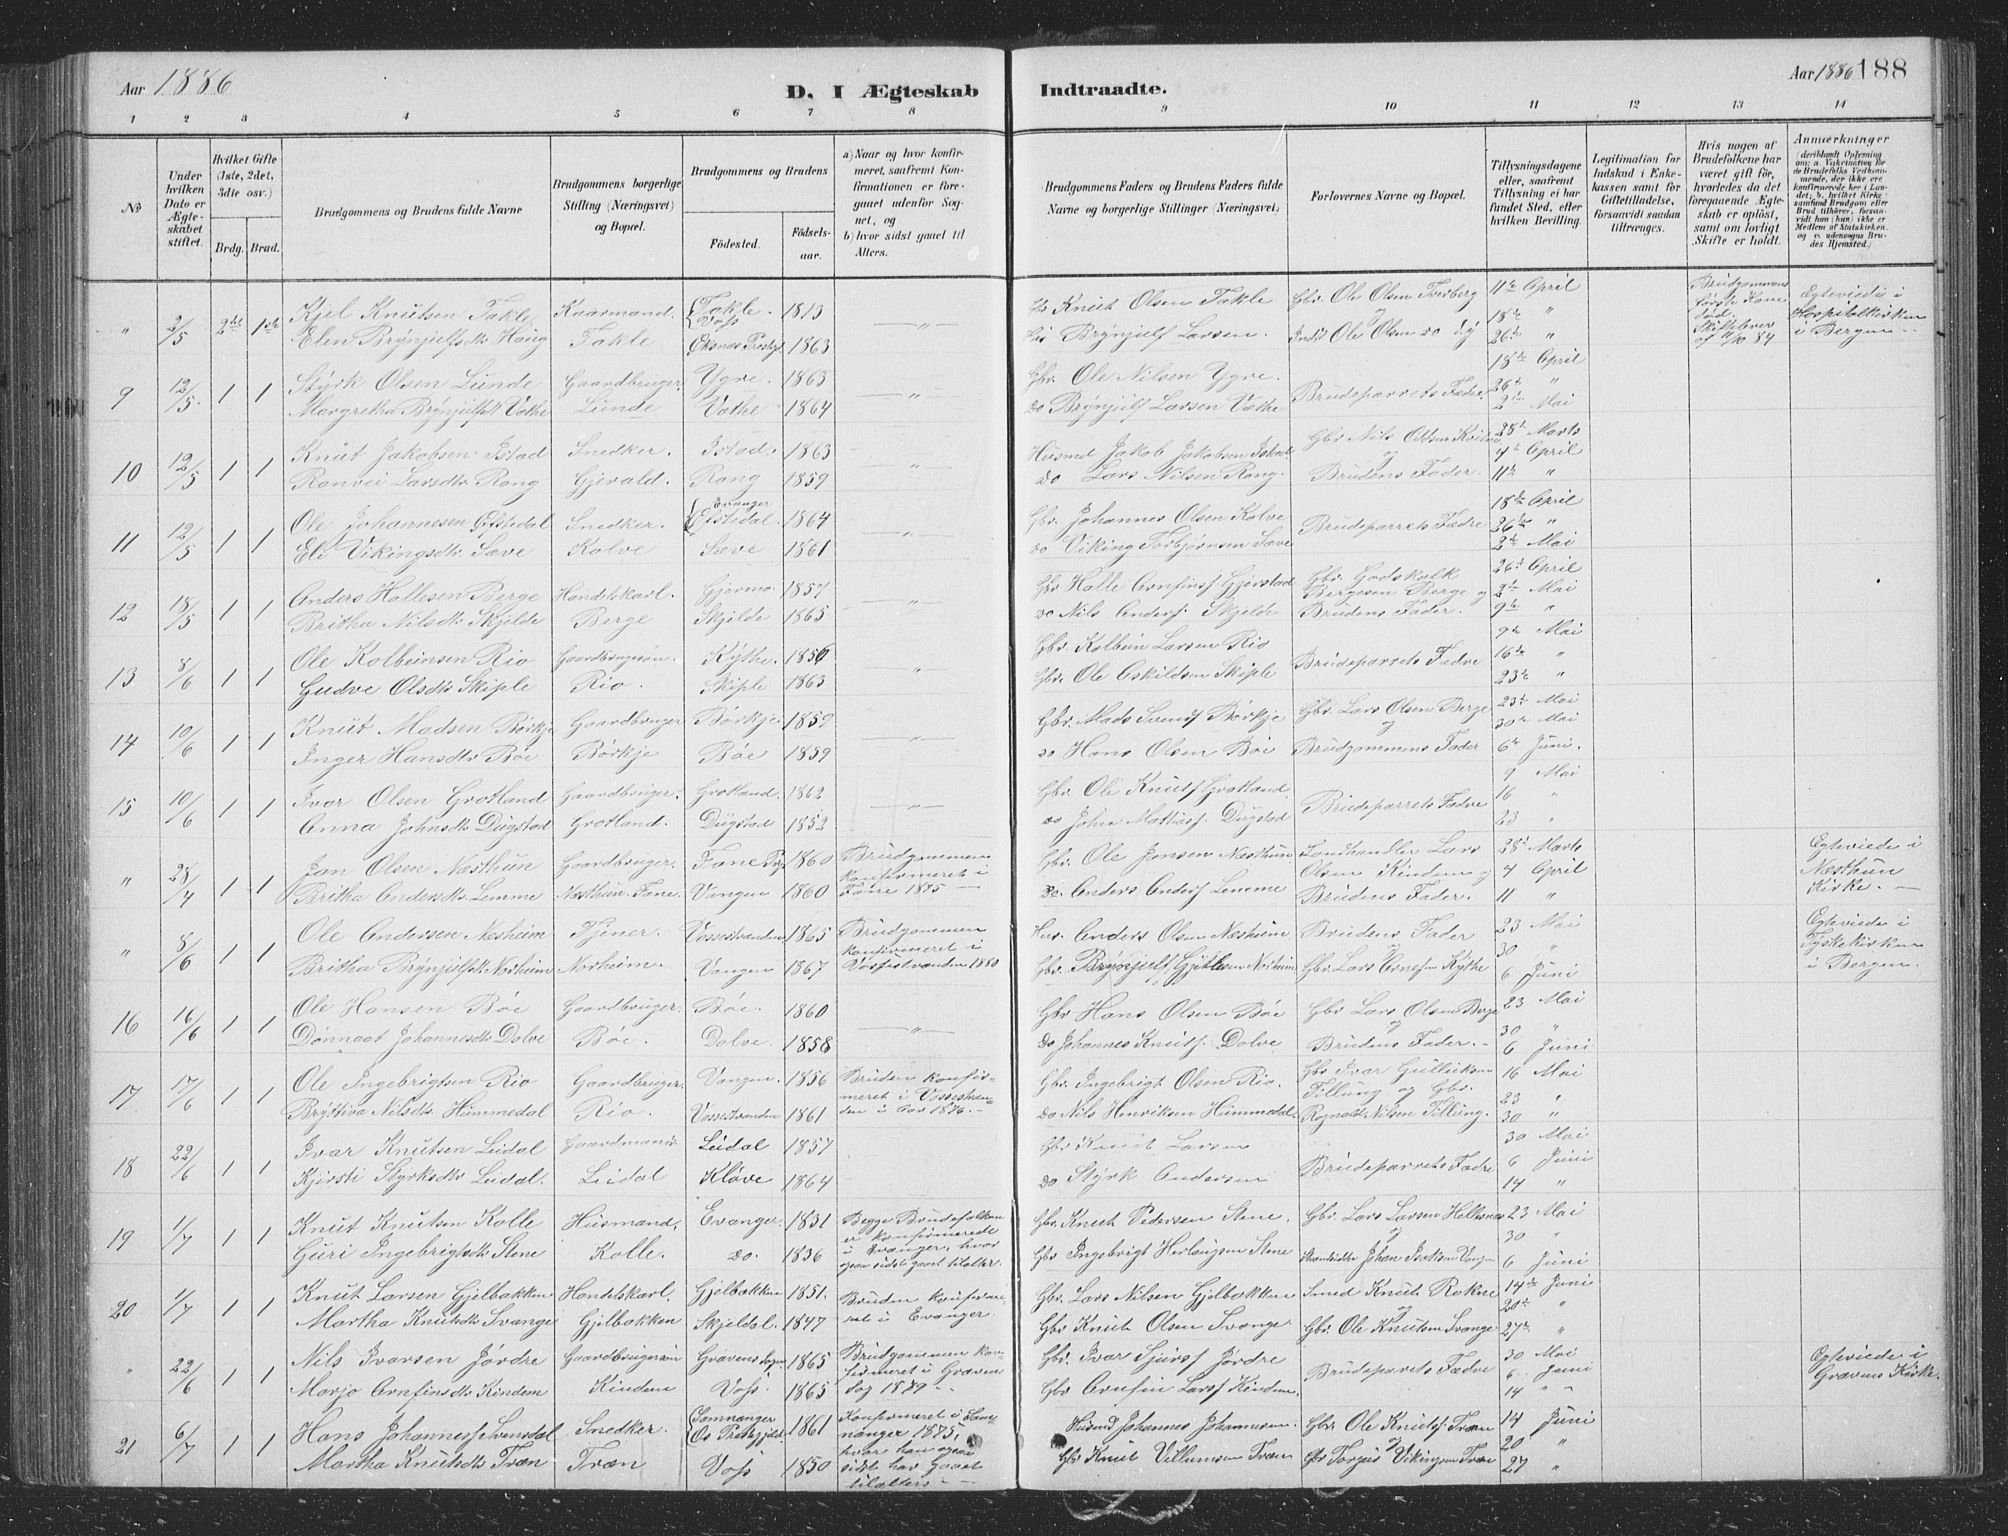 Aar 1886
D. I Ægteskab Indtraadte.
Aar 1886 188
1 2 3 4 5 6 7 8 9 10 11 12 13 14
No
Under hvilken Dato er Ægteskabet stiftet.
Hvilket Gifte (1ste, 2det, 3dte osv.)
Brdg. Brud.
Brudgommens og Brudens fulde Navne
Brudgommens borgerlige Stilling (Næringsvei) og Bopæl.
Brudgommens og Brudens
Födested. Födselsaar.
a) Naar og hvor konfirmeret, saafremt Konfirmationen er foregaaet udenfor Sognet, og
b) hvor sidst gaaet til Alters.
Brudgommens Faders og Brudens Faders fulde Navne og borgerlige Stillinger (Næringsvei)
Forlovernes Navne og Bopæl.
Tillysningsdagene eller, saafremt Tillysning ei har fundet Sted, efter hvilken Bevilling.
Legitimation for Indskud i Enkekassen samt for Giftetilladelse, forsaavidt saadan tiltrænges.
Hvis nogen af Brudefolkene har været gift før, hvorledes da det foregaaende Ægteskab er oplöst, samt om lovligt Skifte er holdt.
Anmærkninger
" 2/5 2det 1ste Kjel Knutsen Takle Kaarmand. Takle. Voss 1813 — " — Knut Olsen Takle Gbr Ole Olsen Tverberg 11te April Brudgommens første Kone død. Skiftebrev af 11/10 84 Egteviede i Hospitalkirken i Bergen.
Elen Brynjulfsdtr Haug Takle Øksnes Præstgj 1863 Brynjulf Larsen. Ole Olsen 18de " 26de "
9 12/5 1 1 Styrk Olsen Lunde Gaardbruger Ygre. 1863 — " — Gbr. Ole Nilsen Ygre. Brudeparrets Fædre. 18de April
Margretha Brynjulfsdt Væthe Lunde Væthe 1864 do Brynjulf Larsen Væthe 26de " 2den Mai
10 12/5 1 1 Knut Jakobsen Istad Snedker. Istad. 1863 — " — Husmd Jakob Jakobsen Istad Gbr Nils 28de Marts
Ranvei Larsdtr Rong Gjerald. Rong 1859 do Lars Nilsen Rong. og Brudens Fader. 4de April 11te "
11 12/5 1 1 Ole Johannesen Efstedal Snedker. Evanger Efstedal 1864 — " — Gbr. Johannes Olsen Kolve Brudeparrets Fædre 18de April
Eli Vikingsdtr Sæve Kolve Sæve 1861 do Viking Torbjørnsen Sæve 26de " 2de Mai
12 18/5 1 1 Anders Hallesen Berge Handelskarl. Gjermo. 1857 — " — Gbr Halle Arnfinsf Gjerstad Gbr. Godskalk Bergesen Berge og 26de April
Britha Nilsdtr Skjelde Berge Skjelde 1865 do Nils Andersf Skjelde Brudens Fader. 2de Mai 9de "
13 8/6 1 1 Ole Kolbeinsen Rio Gaardbrugersøn. Kythe 1856 — " — Gbr. Kolbein Larsen Rio Brudeparrets Fædre 9de Mai
Gudve Olsdtr Skiple Rio. Skiple 1863 Gbr. Ole Eskildsen Skiple 16de " 23de "
14 10/6 1 1 Knut Madsen Børkje Gaardbruger Børkje 1859 — " — Gbr. Mads Svensf Børkje Gbr. Lars Olsen Berge 23de Mai
Inger Hansdtr Bøe Børkje Bøe 1859 do Hans Olsen Bøe og Brudgommens Fader 30te Mai 6te Juni.
15 10/6 1 1 Ivar Olsen Grotland Gaardbruger. Grotland. 1862 — " — Gbr. Ole Knutsf Grotland Brudeparrets Fædre 9 Mai
Anna Johnsdtr Dugstad Grotland. Dugstad 1852 do John Mattiasf. Dugstad 16 " 23 "
" 28/4 1 1 Jan Olsen Næsthun Gaardbruger. Fane 1860 Brudgommen konfirmeret i Fane 1875 — Gbr. Ole Jansen Næsthun Landhandler Lars Olsen Kindem og 28de Marts Egteviede i Næsthun Kirke. —
Britha Andersdtr Lemme Næsthun Fane. Vangen 1860 do. Anders Andersf Lemme Brudens Fader. 4 April 11 "
" 8/6 1 1 Ole Andersen Næsheim Tjener. Vossestranden 1865 Brudgommen konfirmeret i Vossestranden 1880 Hus. Anders Olsen Næsheim Brudens Fader 23 Mai Egteviede i Tyskekirken i Bergen.
Britha Brynjulfsdt Norheim Norheim Vangen 1867 Gbr. Brynjulf Gjetlesen Norheim Gbr Lars Arnesen Kythe 30 " 6 Juni
16 16/6 1 1 Ole Hansen Bøe Gaardbruger. Bøe. 1860 — " — Gbr Hans Olsen Bøe Gbr Lars Olsen Berge 23 Mai
Dønnaat Johannesdtr Dolve Bøe. Dolve. 1858 do Johannes Knutsf. Dolve og Brudens Fader. 30 " 6 Juni
17 17/6 1 1 Ole Ingebrigtsen Rio Gaardbruger. Vangen. 1856 Bruden konfirmeret i Vossestranden i Aar 1876. Gbr. Ingebrigt Olsen Rio. Gbr Ivar Gulliksen Tillung og Gbr. 16 Mai
Bryttiva Nilsdtr Hummedal Rio. Vossestranden 1861 do Nils Henriksen Hummedal Rognald Nilsen Tillung. 23 " 30 "
18 22/6 1 1 Ivar Knutsen Leidal Gaardmand Leidal 1857 Gbr Knut Larsen Brudeparrets Fædre 30 Mai
Kjersti Styrksdtr Leidal. Leidal Kløve 1864 do Styrk Andersen 6 Juni 14 "
19 1/7 1 1 Knut Knutsen Kolle Husmand, Evanger. 1831 Begge Brudefolkene er konfirmerede i Evanger, hvor ogsaa sidst gaaet tilalter. Gbr. Knut Pedersen Stene. Gbr. Lars Larsen Hellesnæs 23 Mai
Guri Ingebrigtsdtr Stene Kolle. do. 1836 Gbr Ingebrigt Herlaugsen Stene og Strandsidder Johan Isaksen Vangen 30 " 6 Juni
20 1/7 1 1 Knut Larsen Gjelbakken Handelskarl. Gjelbakken 1851. Bruden konfirmeret i Evanger. Gbr. Lars Nilsen Gjelbakken Smed Knut Rokne 14de Juni
Martha Knutsdtr Svange Gjelbakken Skjeldal. 1847 Gbr Knut Olsen Svange og Gbr. Ole Knutsen Svange 20de " 27de "
" 22/6 1 1 Nils Ivarsen Jørdre Gaardbrugersøn Gravens Sogn 1865 Brudgommen konfirmeret i Gravens Sog 1879 - Gbr. Ivar Sjursf Jørdre Brudeparrets Fædre 30 Mai Egteviede i Gravens Kirke.
Marjo Arnfinsdtr Kindem Kindem Voss. 1865 Gbr Arnfin Larsf Kindem. 6 Juni 14 "
21 6/7 1 1 Hans Johannesf Svensdal Snedker. Samnanger Os Præstgjeld. 1861 Konfirmeret i Samnanger 1875, hvor han ogsaa sidst har gaaet tilalters. — Husmd Johannes Johannesen. Gbr. Ole Knutsf. Træn 14 Juni
Martha Knutsdtr Træn Træn Voss 1850 Gbr Knut Villumsen Træn og Gbr Torgeis Vikingsen Træn 20 " 27 "